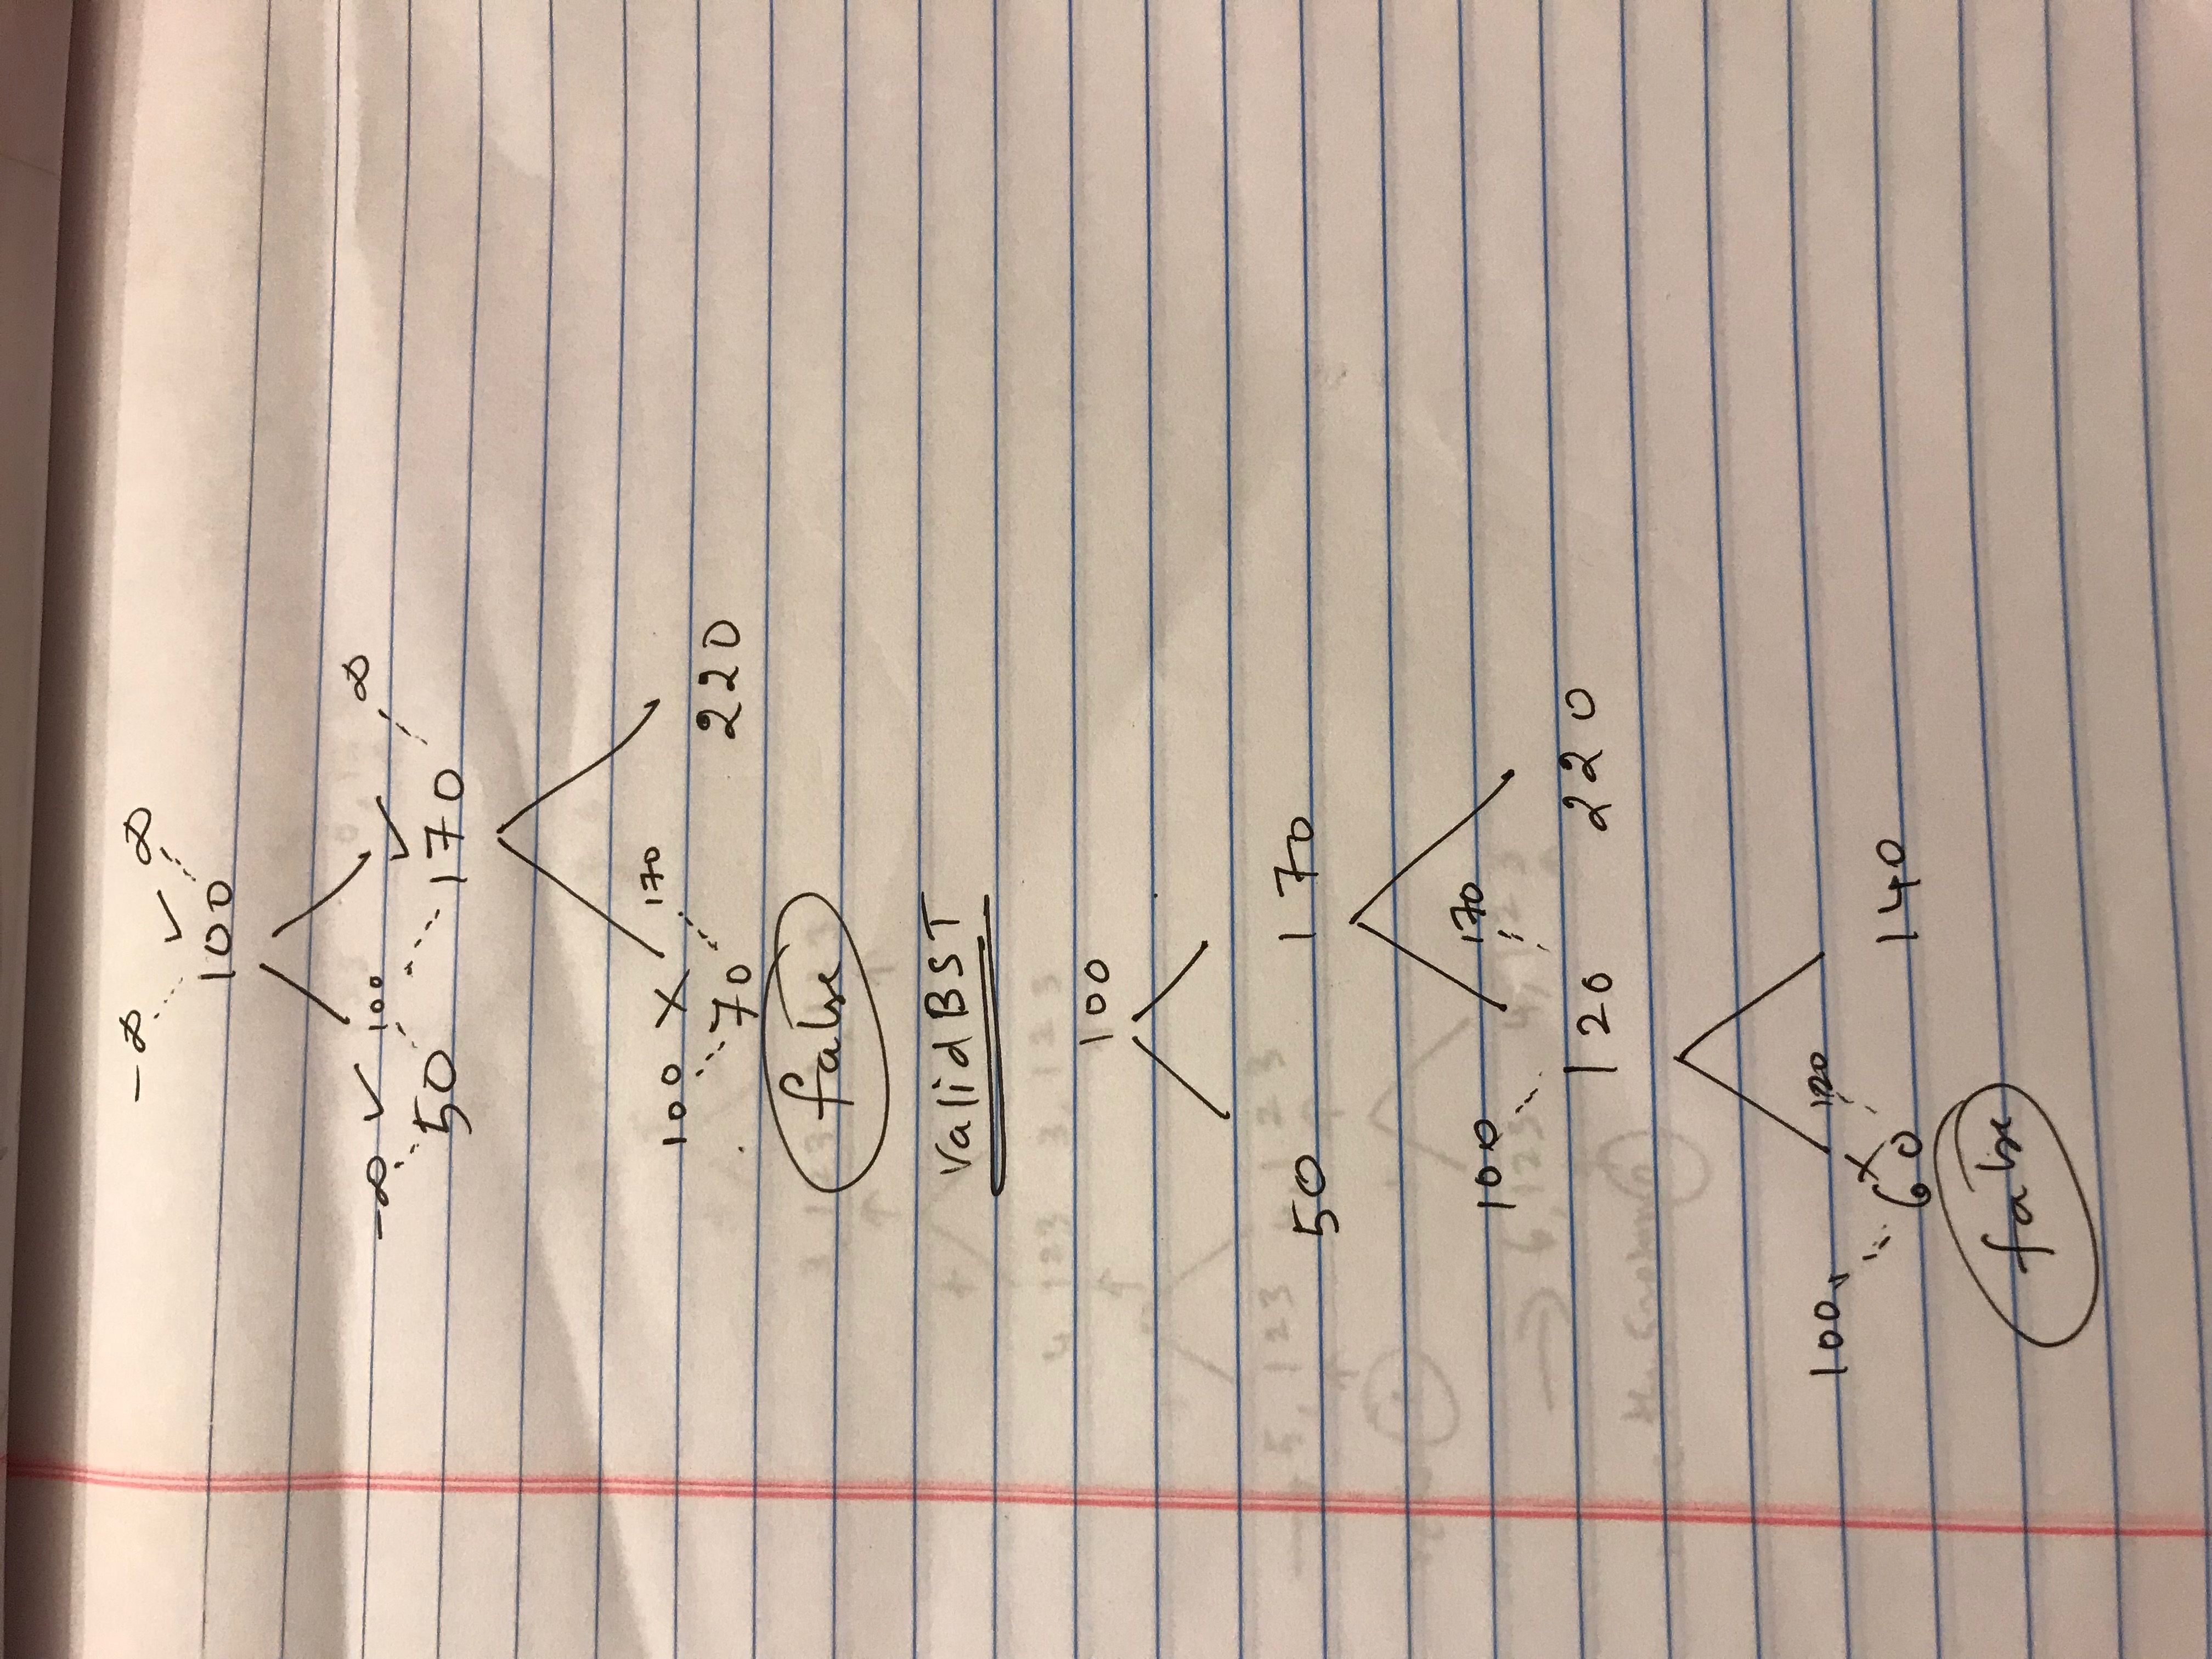 -∞ ✓ ∞
100
-∞ ✓ 100 ✓ ∞
50 170
100 X 170
70 220
false
Valid BST
100
50 170
100 170
120 220
100 120
X
60 140
false